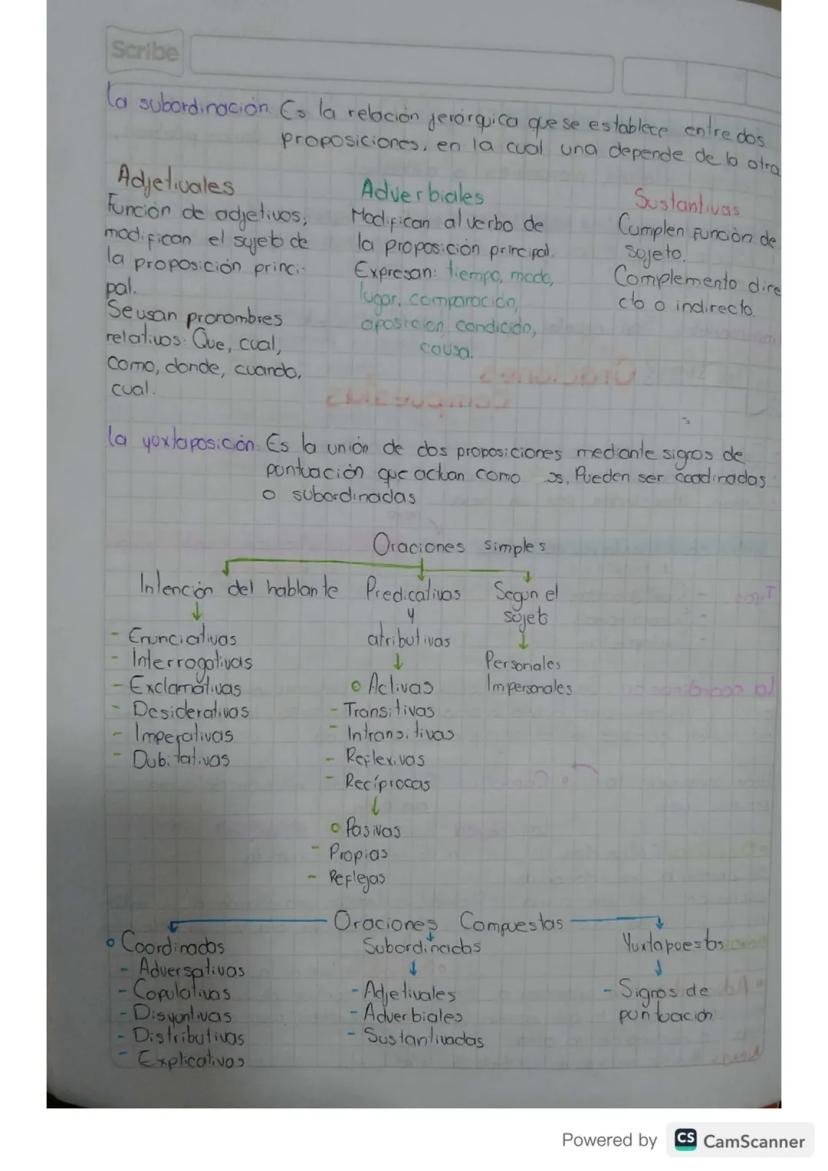 Scribe
La subordinación. Es la relación jerárquica que se establece entre dos
proposiciones, en la cual una depende de la otra
Adjetivales
Función de adjetivos,
modifican el sujeto de
la proposición princi-
pal.
Se usan pronombres
relativos: Que, cual,
como, donde, cuando,
cual.
Adverbiales
Modifican al verbo de
la proposición principal.
Expresan: tiempo, modo,
lugar, comparación,
oposición, condición,
causa.
Sustantivas
Cumplen función de
sujeto.
Complemento dire
cto o indirecto.
La yuxtaposición. Es la unión de dos proposiciones mediante signos de
puntuación que actúan como os. Pueden ser coordinadas
o subordinadas
Oraciones simples
Intención del hablante
- Enunciativas
- Interrogativas
- Exclamativas
- Desiderativas
- Imperativas
- Dubitativas
Predicativas
y
atributivas
o Activas
- Transitivas
- Intransitivas
- Reflexivas
- Recíprocas
o Pasivas
- Propias
- Reflejas
Según el
sujeto
Personales
Impersonales
Oraciones Compuestas
o Coordinadas
- Adversativas
- Copulativas
- Disyuntivas
- Distributivas
- Explicativas
Subordinadas
- Adjetivales
- Adverbiales
- Sustantivadas
Yuxtapuestas
- Signos de
puntuación
Powered by CS CamScanner